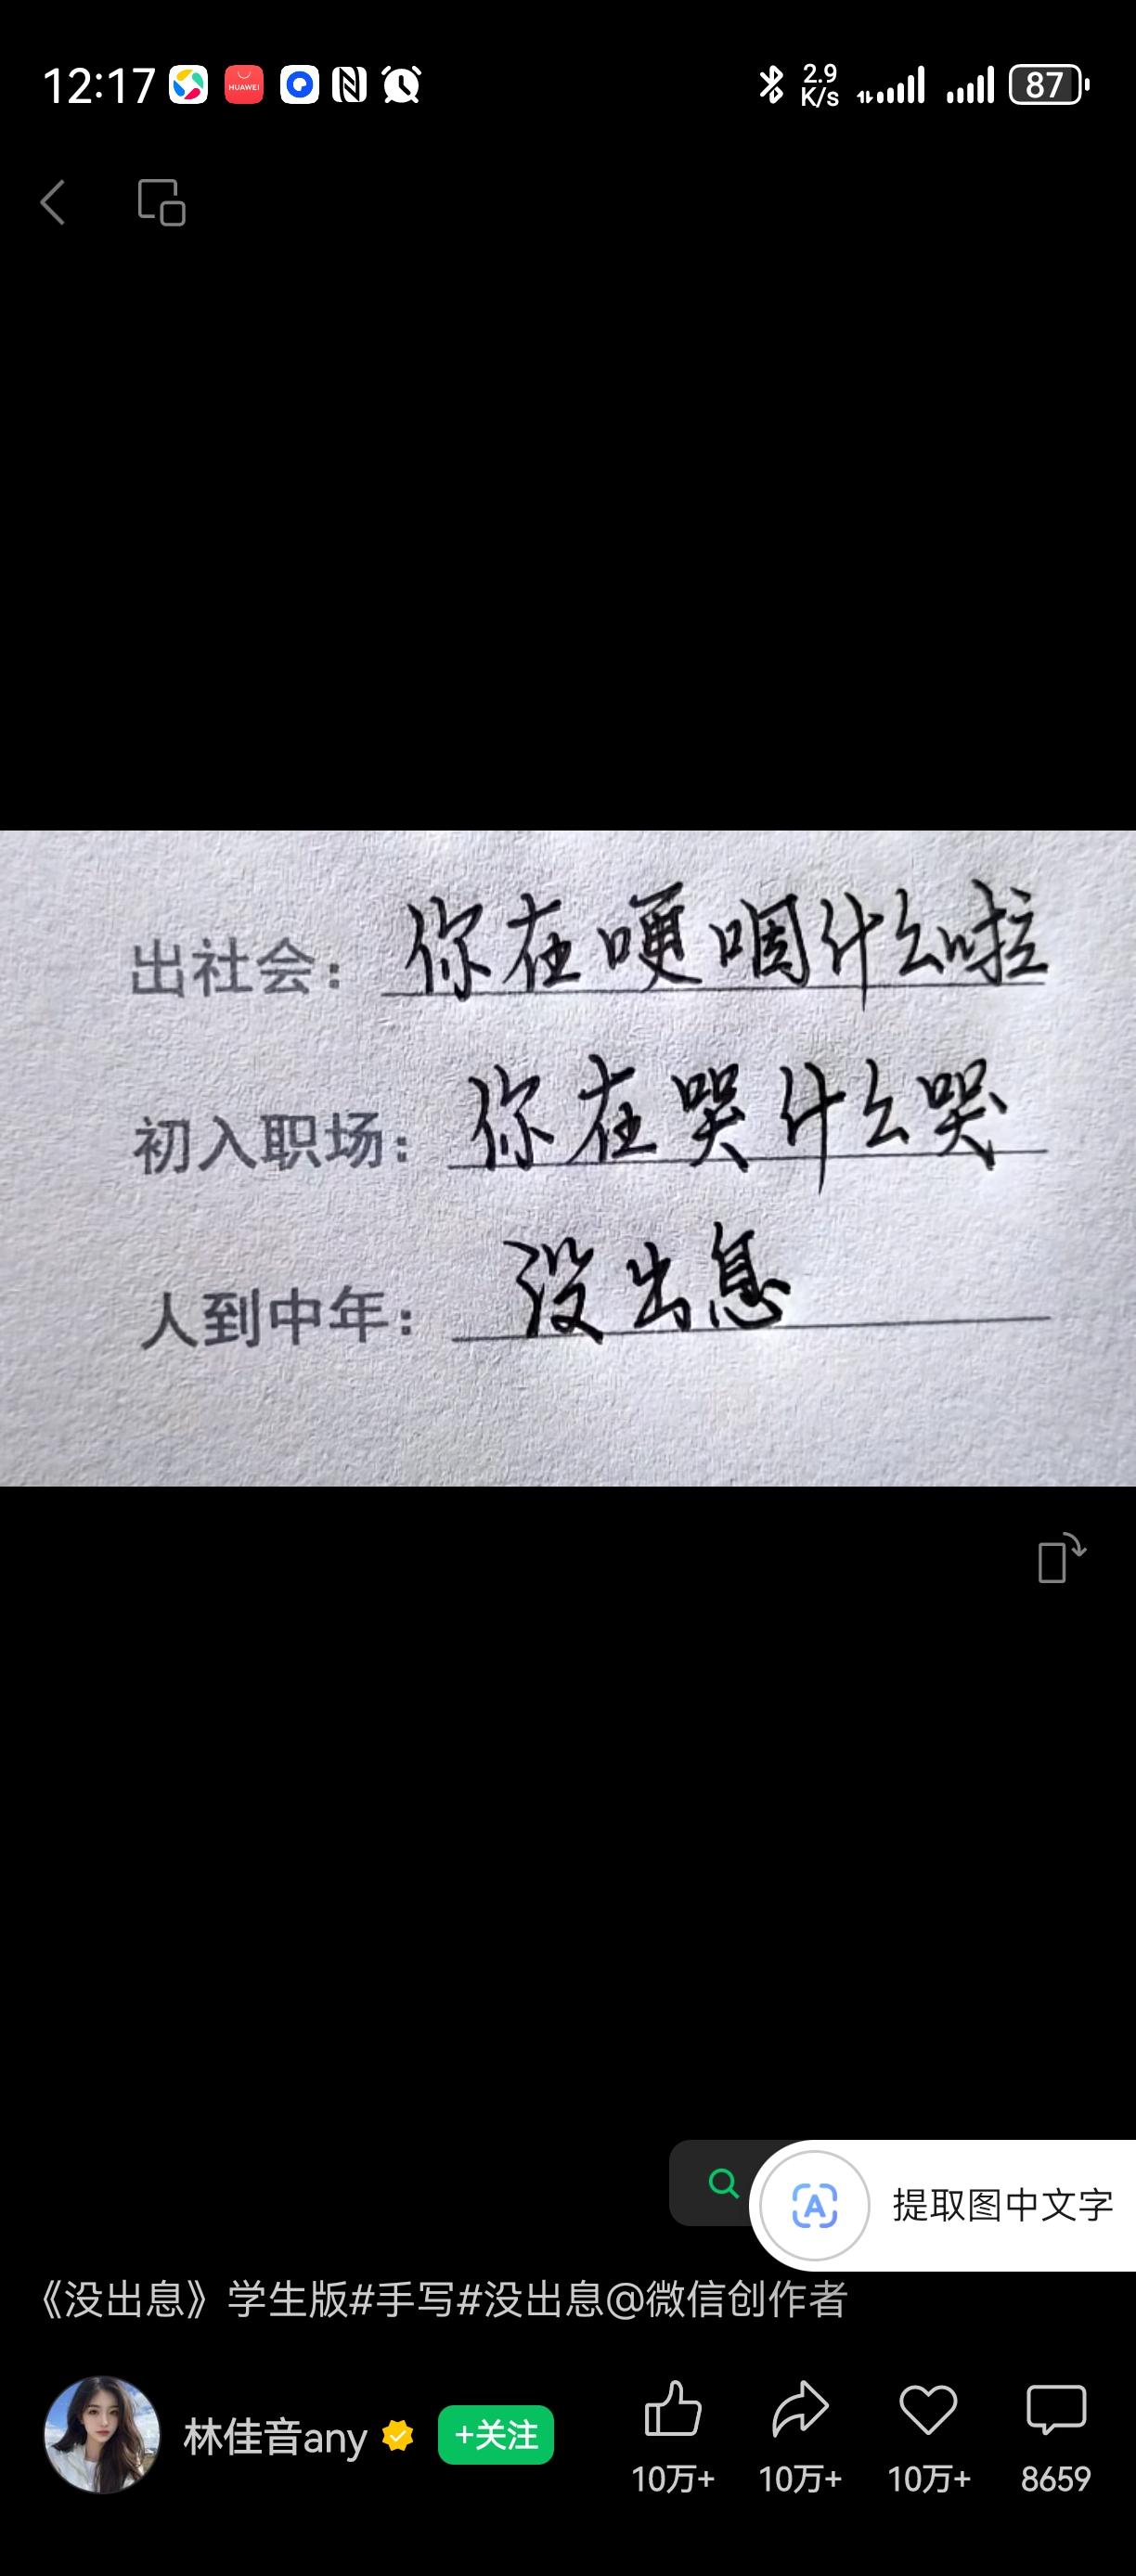 12:17
HUAWEI
2.9
K/s
87
出社会：你在哽咽什么啦
初入职场：你在哭什么哭
人到中年：没出息
提取图中文字
《没出息》学生版#手写#没出息@微信创作者
林佳音any
+关注
10万+
10万+
10万+
8659